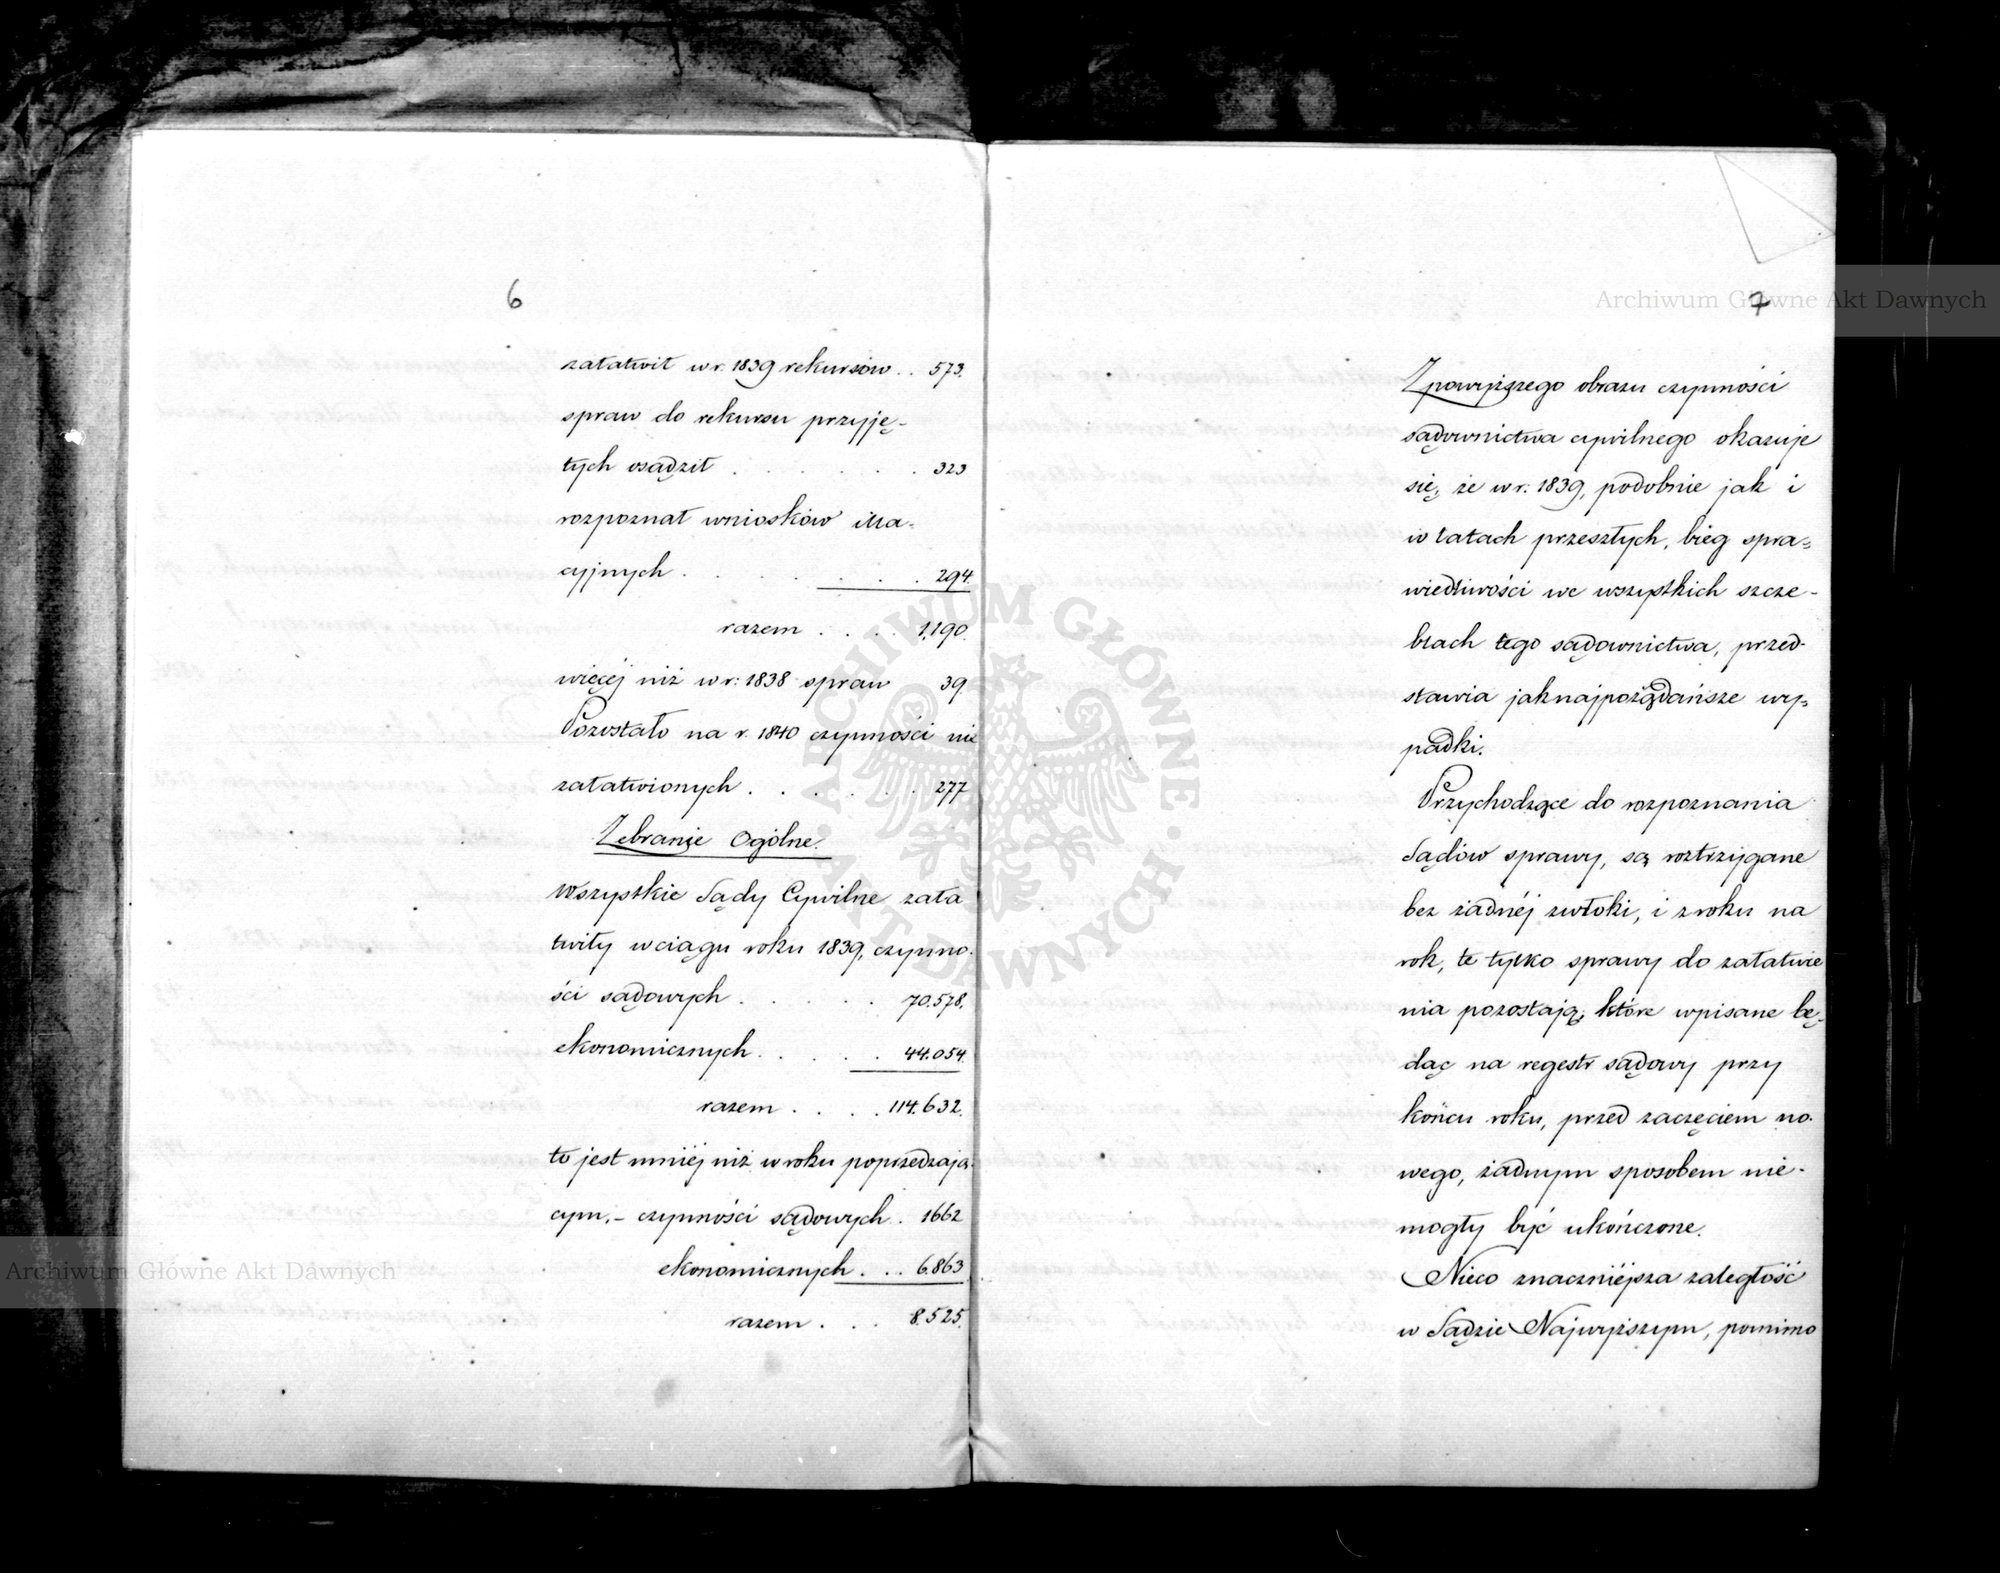 6
załatwił w r. 1839 rekursów . . 573.
spraw do rekursu przyję-
tych osądził . . . . . . 323
rozpoznał wniosków illa-
cyjnych . . . . . . 294.
razem . . . . 1,190.
więcéj niż w r: 1838 spraw 39
Pozostało na r. 1840 czynności nie
załatwionych . . . . . . 277
Zebranie Ogólne.
Wszystkie Sądy Cywilne zała
twiły w ciągu roku 1839, czynno-
ści sądowych . . . . . 70.578.
ekonomicznych . . . . . 44.054.
razem . . . . 114.632.
to jest mniéj niż w roku poprzedzają-
cym, - czynności sądowych . 1662
ekonomicznych . . . 6.863
razem . . . 8.525.
7
Z powyższego obrazu czynności
sądownictwa cywilnego okazuje
się, że w r: 1839, podobnie jak i
w latach przeszłych, bieg spra=
wiedliwości we wszystkich szcze-
blach tego sądownictwa, przed-
stawia jaknajpożądańsze wy=
padki.
Przychodzące do rozpoznania
Sądów sprawy, są roztrzygane
bez żadnéj zwłoki, i z roku na
rok, te tylko sprawy do załatwie
nia pozostają, które wpisane bę-
dąc na regestr sądowy przy
końcu roku, przed zaczęciem no-
wego, żadnym sposobem nie-
mogły być ukończone.
Nieco znaczniéjsza zaległość
w Sądzie Najwyższym, pomimo
Archiwum Główne Akt Dawnych
Archiwum Główne Akt Dawnych
ARCHIWUM GŁÓWNE · AKT DAWNYCH ·